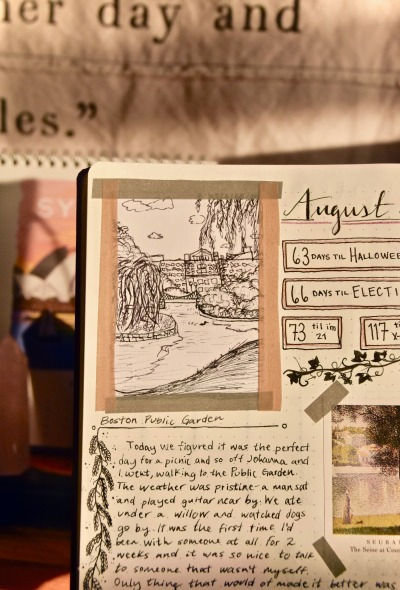 her day and
les."
SY
August
63 DAYS TIL HALLOWE
66 DAYS TIL ELECTI
73 til im 21
117 ti
X-
Boston Public Garden
Today we figured it was the perfect
day for a picnic and so off Johanna and
I went, walking to the Public Garden.
The weather was pristine - a man sat
and played guitar near by. We ate
under a willow and watched dogs
go by. It was the first time I'd
been with someone at all for 2
weeks and it was so nice to talk
to someone that wasn't myself.
Only thing that would of made it better was
SEURA
The Seine at Cour